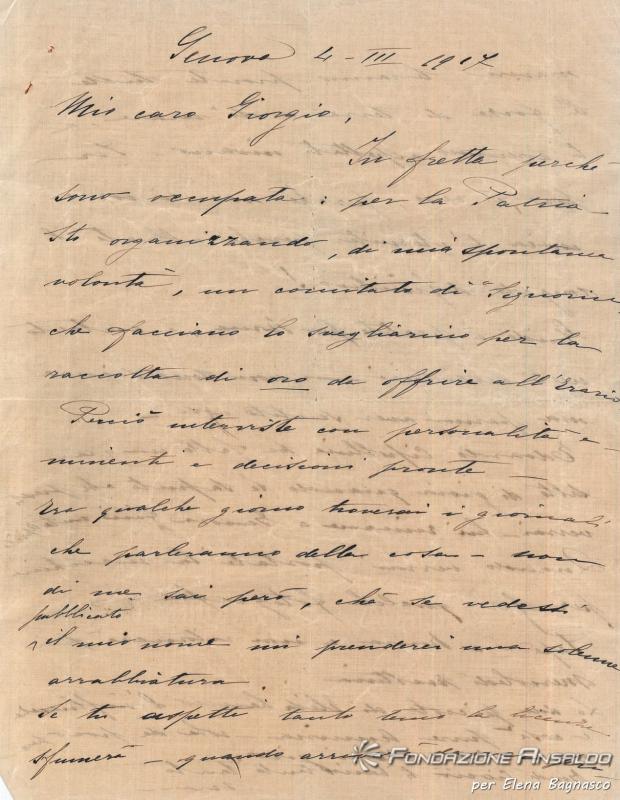 Genova 4 - III 1917
Mio caro Giorgio,
In fretta perchè
sono occupata : per la Patria
Sto organizzando, di mia spontanea
volontà, un comitato di "Signorine"
che facciano lo svegliarino per la
raccolta di oro da offrire all'Erario
Perciò interviste con personalità e-
minenti e decisioni pronte
Tra qualche giorno troverai i giornali
che parleranno della cosa - non
di me sai però, chè se vedessi
pubblicato
il mio nome mi prenderei una solenne
arrabbiatura
Se tu aspetti tanto temo la licenza
sfumerà - quando
FONDAZIONE ANSALDO
per Elena Bagnasco